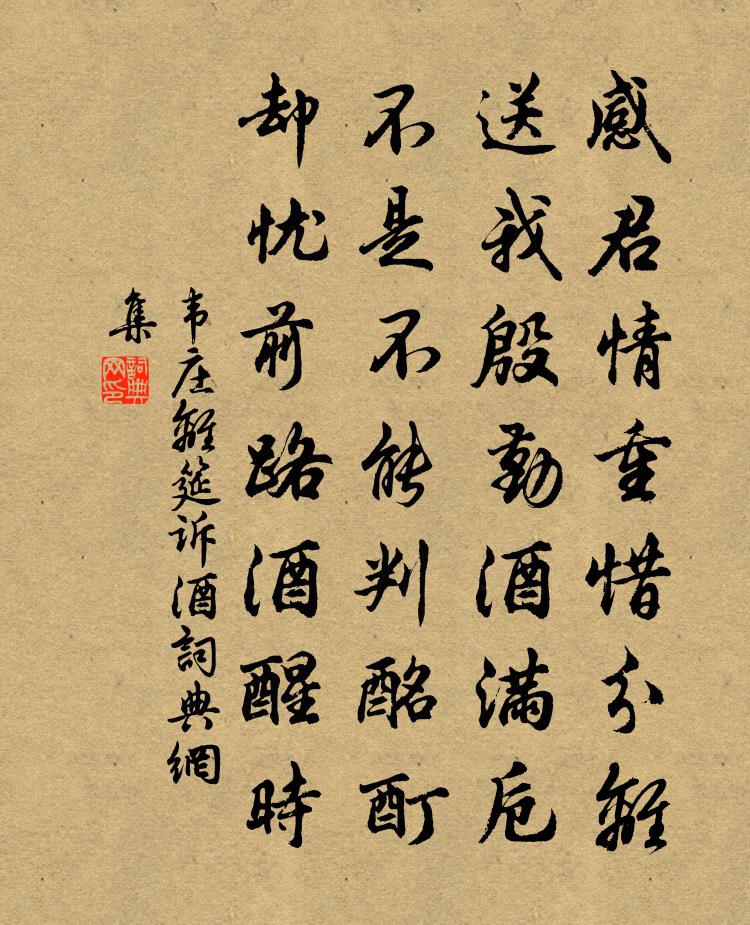 感君情重惜分離
送我殷勤酒滿卮
不是不能判酩酊
却忧前路酒醒時
韦庄離筵訴酒詞典網
集
詞典网印